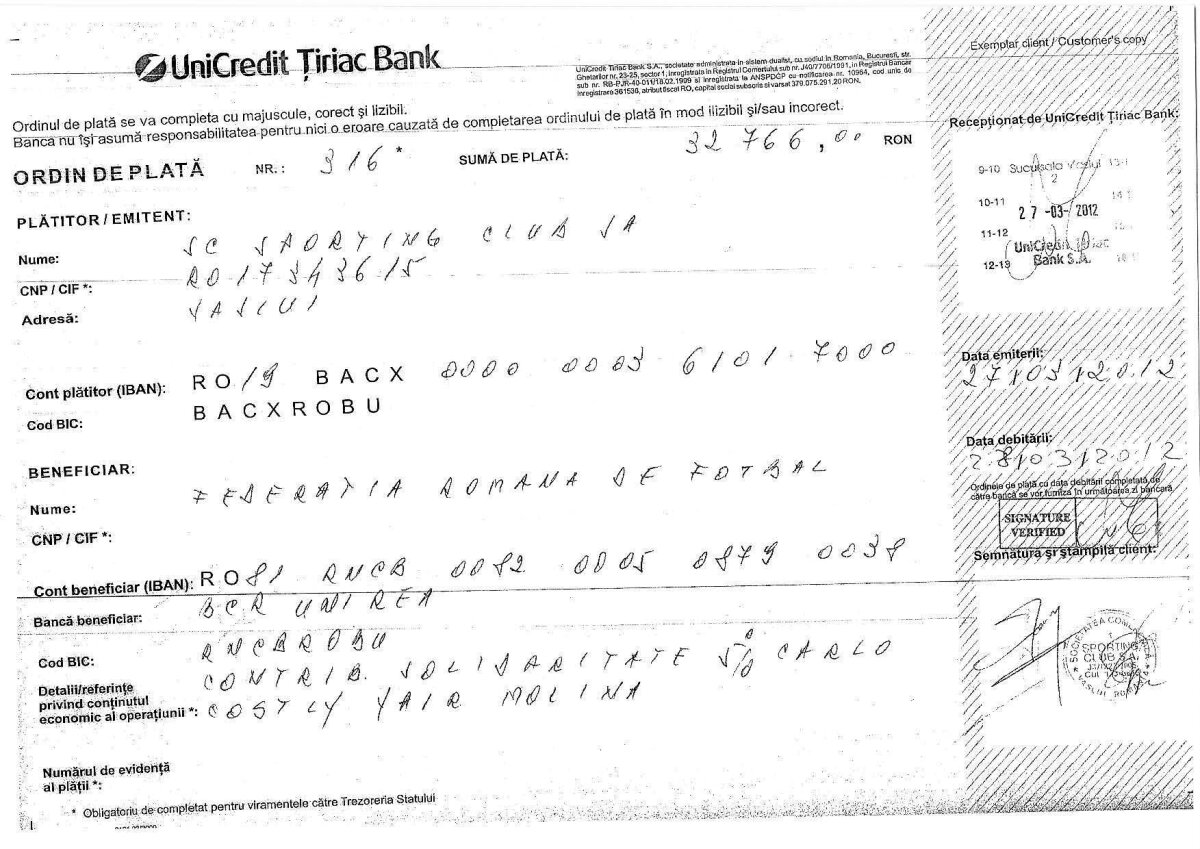 UniCredit Țiriac Bank
UniCredit Tiriac Bank S.A., societate administrata in sistem dualist, cu sediul in Romania, Bucuresti, str.
Ghetarilor nr. 23-25, sector 1, inregistrata in Registrul Comertului sub nr. J40/7706/1991, in Registrul Bancar
sub nr. RB-PJR-40-011/18.02.1999 si inregistrata la ANSPDCP cu notificarea nr. 10964, cod unic de
inregistrare 361536, atribut fiscal RO, capital social subscris si varsat 379.075.291,20 RON.
Exemplar client / Customer's copy
Ordinul de plată se va completa cu majuscule, corect și lizibil.
Banca nu își asumă responsabilitatea pentru nici o eroare cauzată de completarea ordinului de plată în mod ilizibil și/sau incorect.
Recepționat de UniCredit Țiriac Bank:
ORDIN DE PLATĂ NR.: 316 * SUMĂ DE PLATĂ: 32 766,00 RON
9-10 Sucursala Vaslui 13-1
2
10-11 14
27 -03- 2012
11-12 15
UniCredit Tiriac
12-13 Bank S.A. 16
PLĂTITOR / EMITENT:
Nume: SC SPORTING CLUB SA
CNP / CIF *: RO 17343615
Adresă: VASLUI
Cont plătitor (IBAN): RO19 BACX 0000 0003 6101 7000
Cod BIC: BACXROBU
Data emiterii:
27/03/2012
Data debitării:
28/03/2012
Ordinele de plată cu data debitării completată de
către bancă se vor furniza în următoarea zi bancară
SIGNATURE
VERIFIED
Semnătura și ștampilă client:
BENEFICIAR:
Nume: FEDERATIA ROMANA DE FOTBAL
CNP / CIF *:
Cont beneficiar (IBAN): RO81 RNCB 0082 0005 0879 0038
Bancă beneficiar: BCR UNIREA
Cod BIC: RNCBROBU
Detalii/referințe
privind conținutul
economic al operațiunii *:
CONTRIB. SOLIDARITATE 5% CARLO
COSTLY YAIR MOLINA
SOCIETATEA COMERCIALA
SPORTING
CLUB S.A.
VASLUI ROMANIA
Numărul de evidență
al plății *:
* Obligatoriu de completat pentru viramentele către Trezoreria Statului